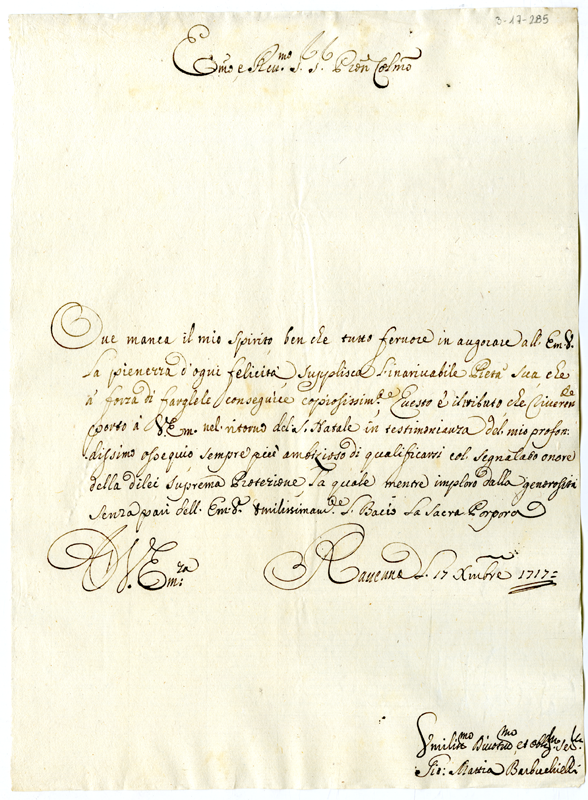 3-17-285
Em̃o, e Reu.mo S. S. Prõn Colm̃o
Oue manca il mio spirito ben che tutto feruore in augurare all' Em.V.
la pienezza d'ogni felicità supplisca l'inariuabile Pietà sua che
a' forza di
conseguisce copiosissim.te Questo è il tributo che riueren.te
porto à V. Em. nel ritorno del S. Natale in testimonianza del mio profon=
dissimo ossequio sempre più ambizioso di qualificarmi col segnalato onore
della dilei suprema Protezione la quale mentre imploro dalla generosità
senza pari dell' Em. V. Vmilissimam.te L. Bacio la Sacra Porpora
D V. Em.za
Rauenna L. 17 Xmbre 1717=
Vmiliss.mo Diuot.mo, et obblig.mo Ser.
Gio: Mattia Barbuchielli